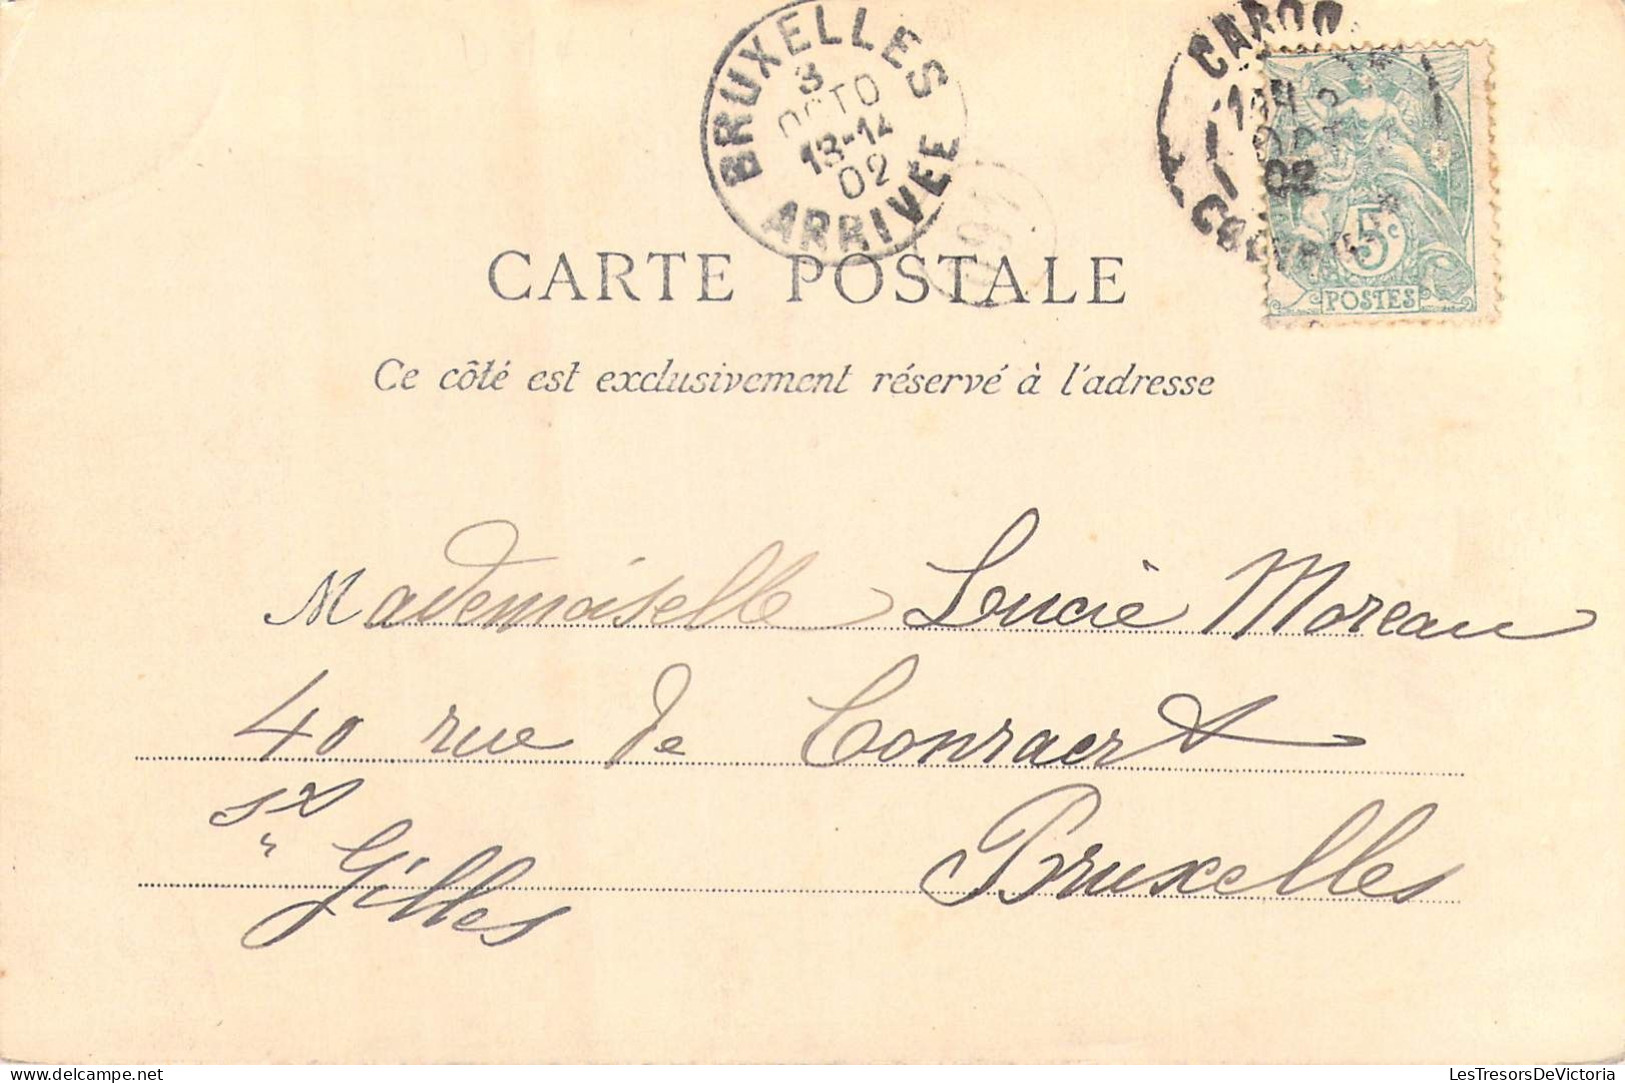 BRUXELLES
3
OCTO
13-14
02
ARRIVEE
02
5c
POSTES
CARTE POSTALE
Ce côté est exclusivement réservé à l'adresse
Mademoiselle Lucie Moreau
40 rue de Conraert
St Gilles
Bruxelles
LesTresorsDeVictoria